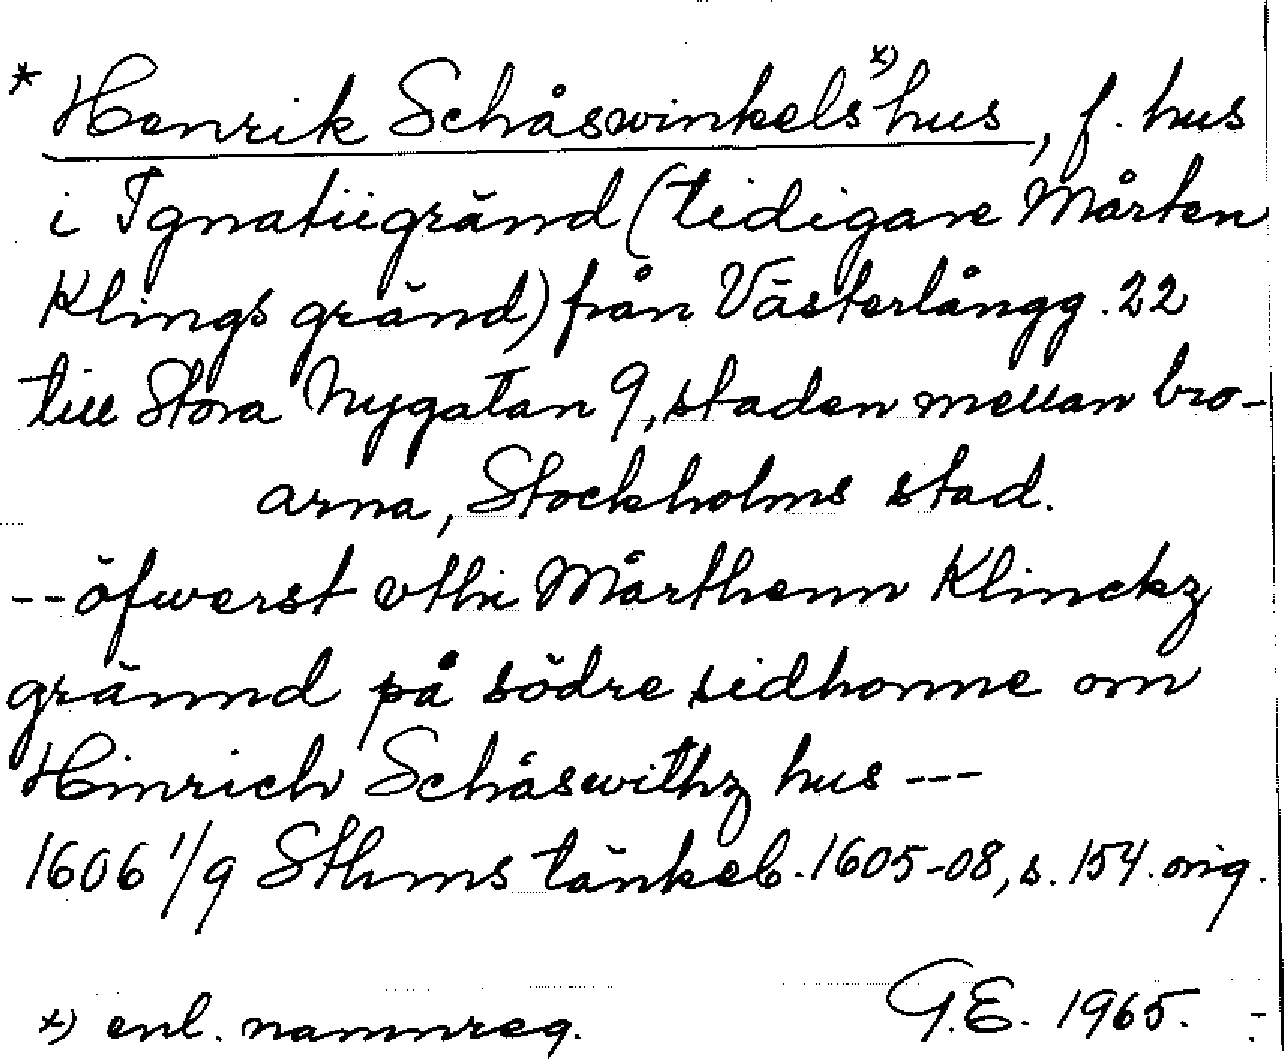 * Henrik Schåswinkels x) hus, f. hus
i Ignatiigränd (tidigare Mårten
Klings gränd) från Västerlångg. 22
till Stora Nygatan 9, staden mellan bro-
arna, Stockholms stad.
-- öfwerst vthi Mårthenn Klinckz
grännd på södre sidhonne om
Hinrich Schåswithz hus ---
1606 1/9 Sthms tänkeb. 1605-08, s. 154. orig.
x) enl. namnreg. G.E. 1965.